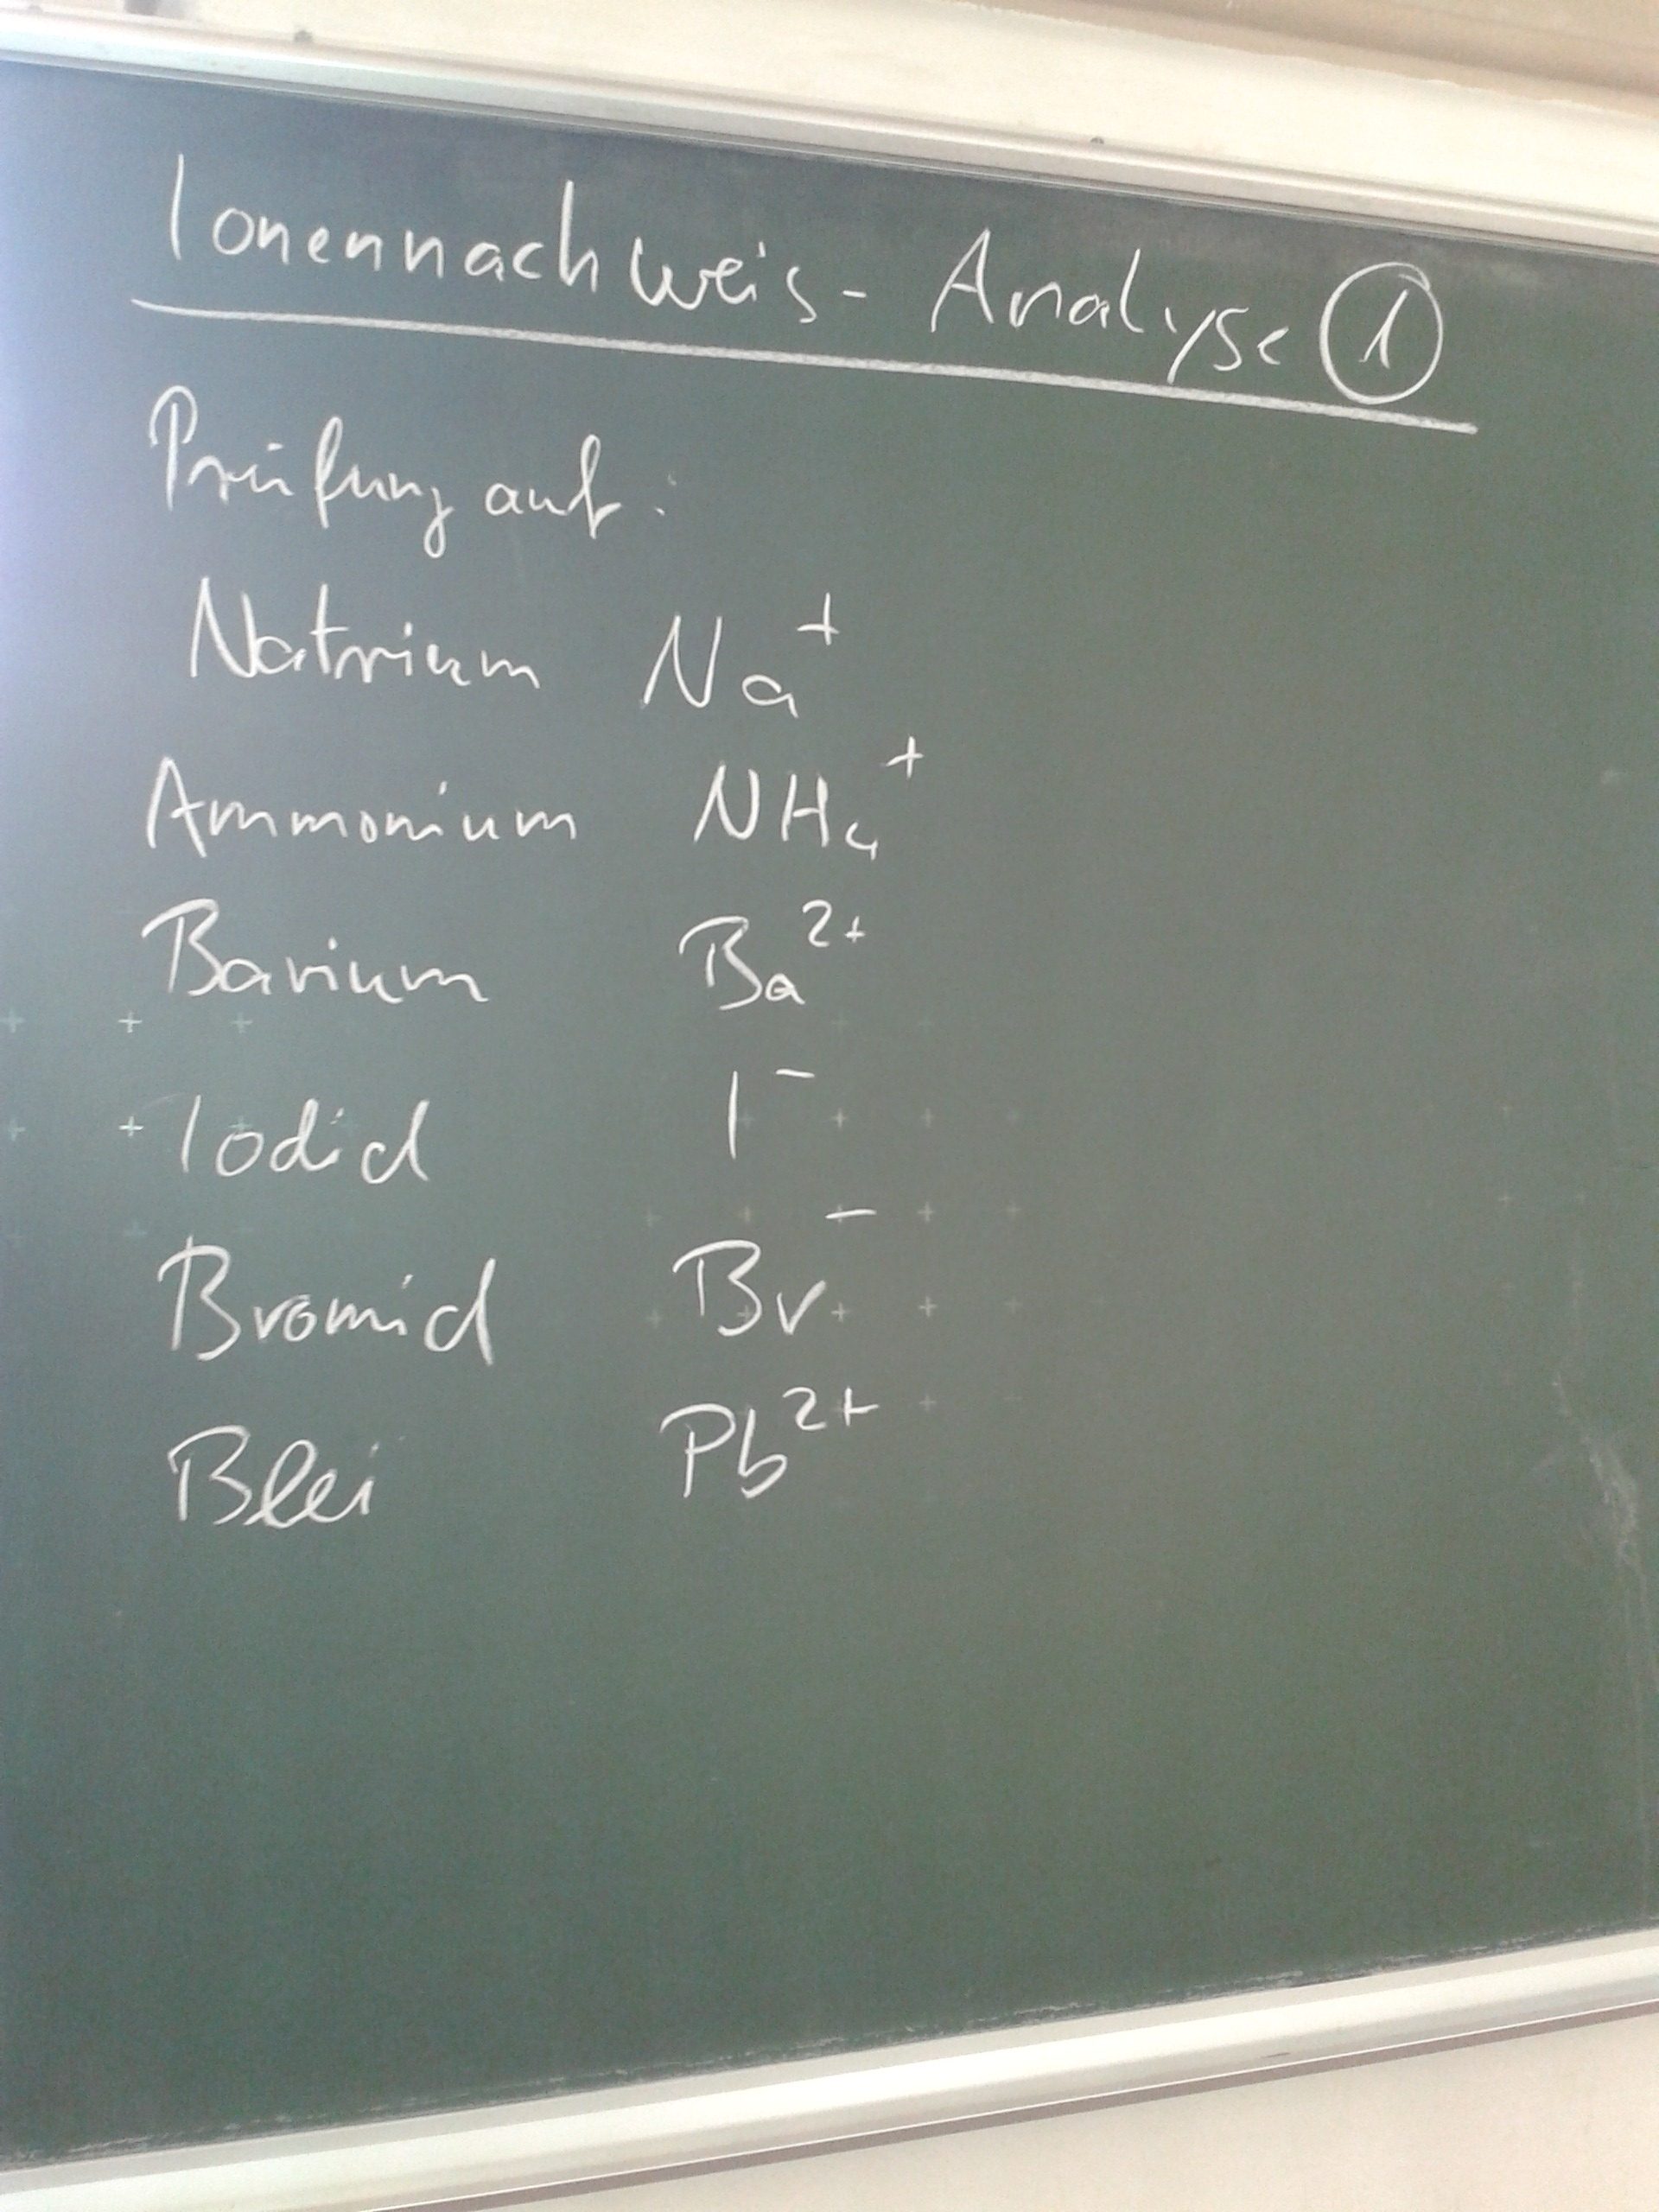 Ionennachweis - Analyse ①
Prüfung auf:
Natrium Na⁺
Ammonium NH₄⁺
Barium Ba²⁺
Iodid I⁻
Bromid Br⁻
Blei Pb²⁺